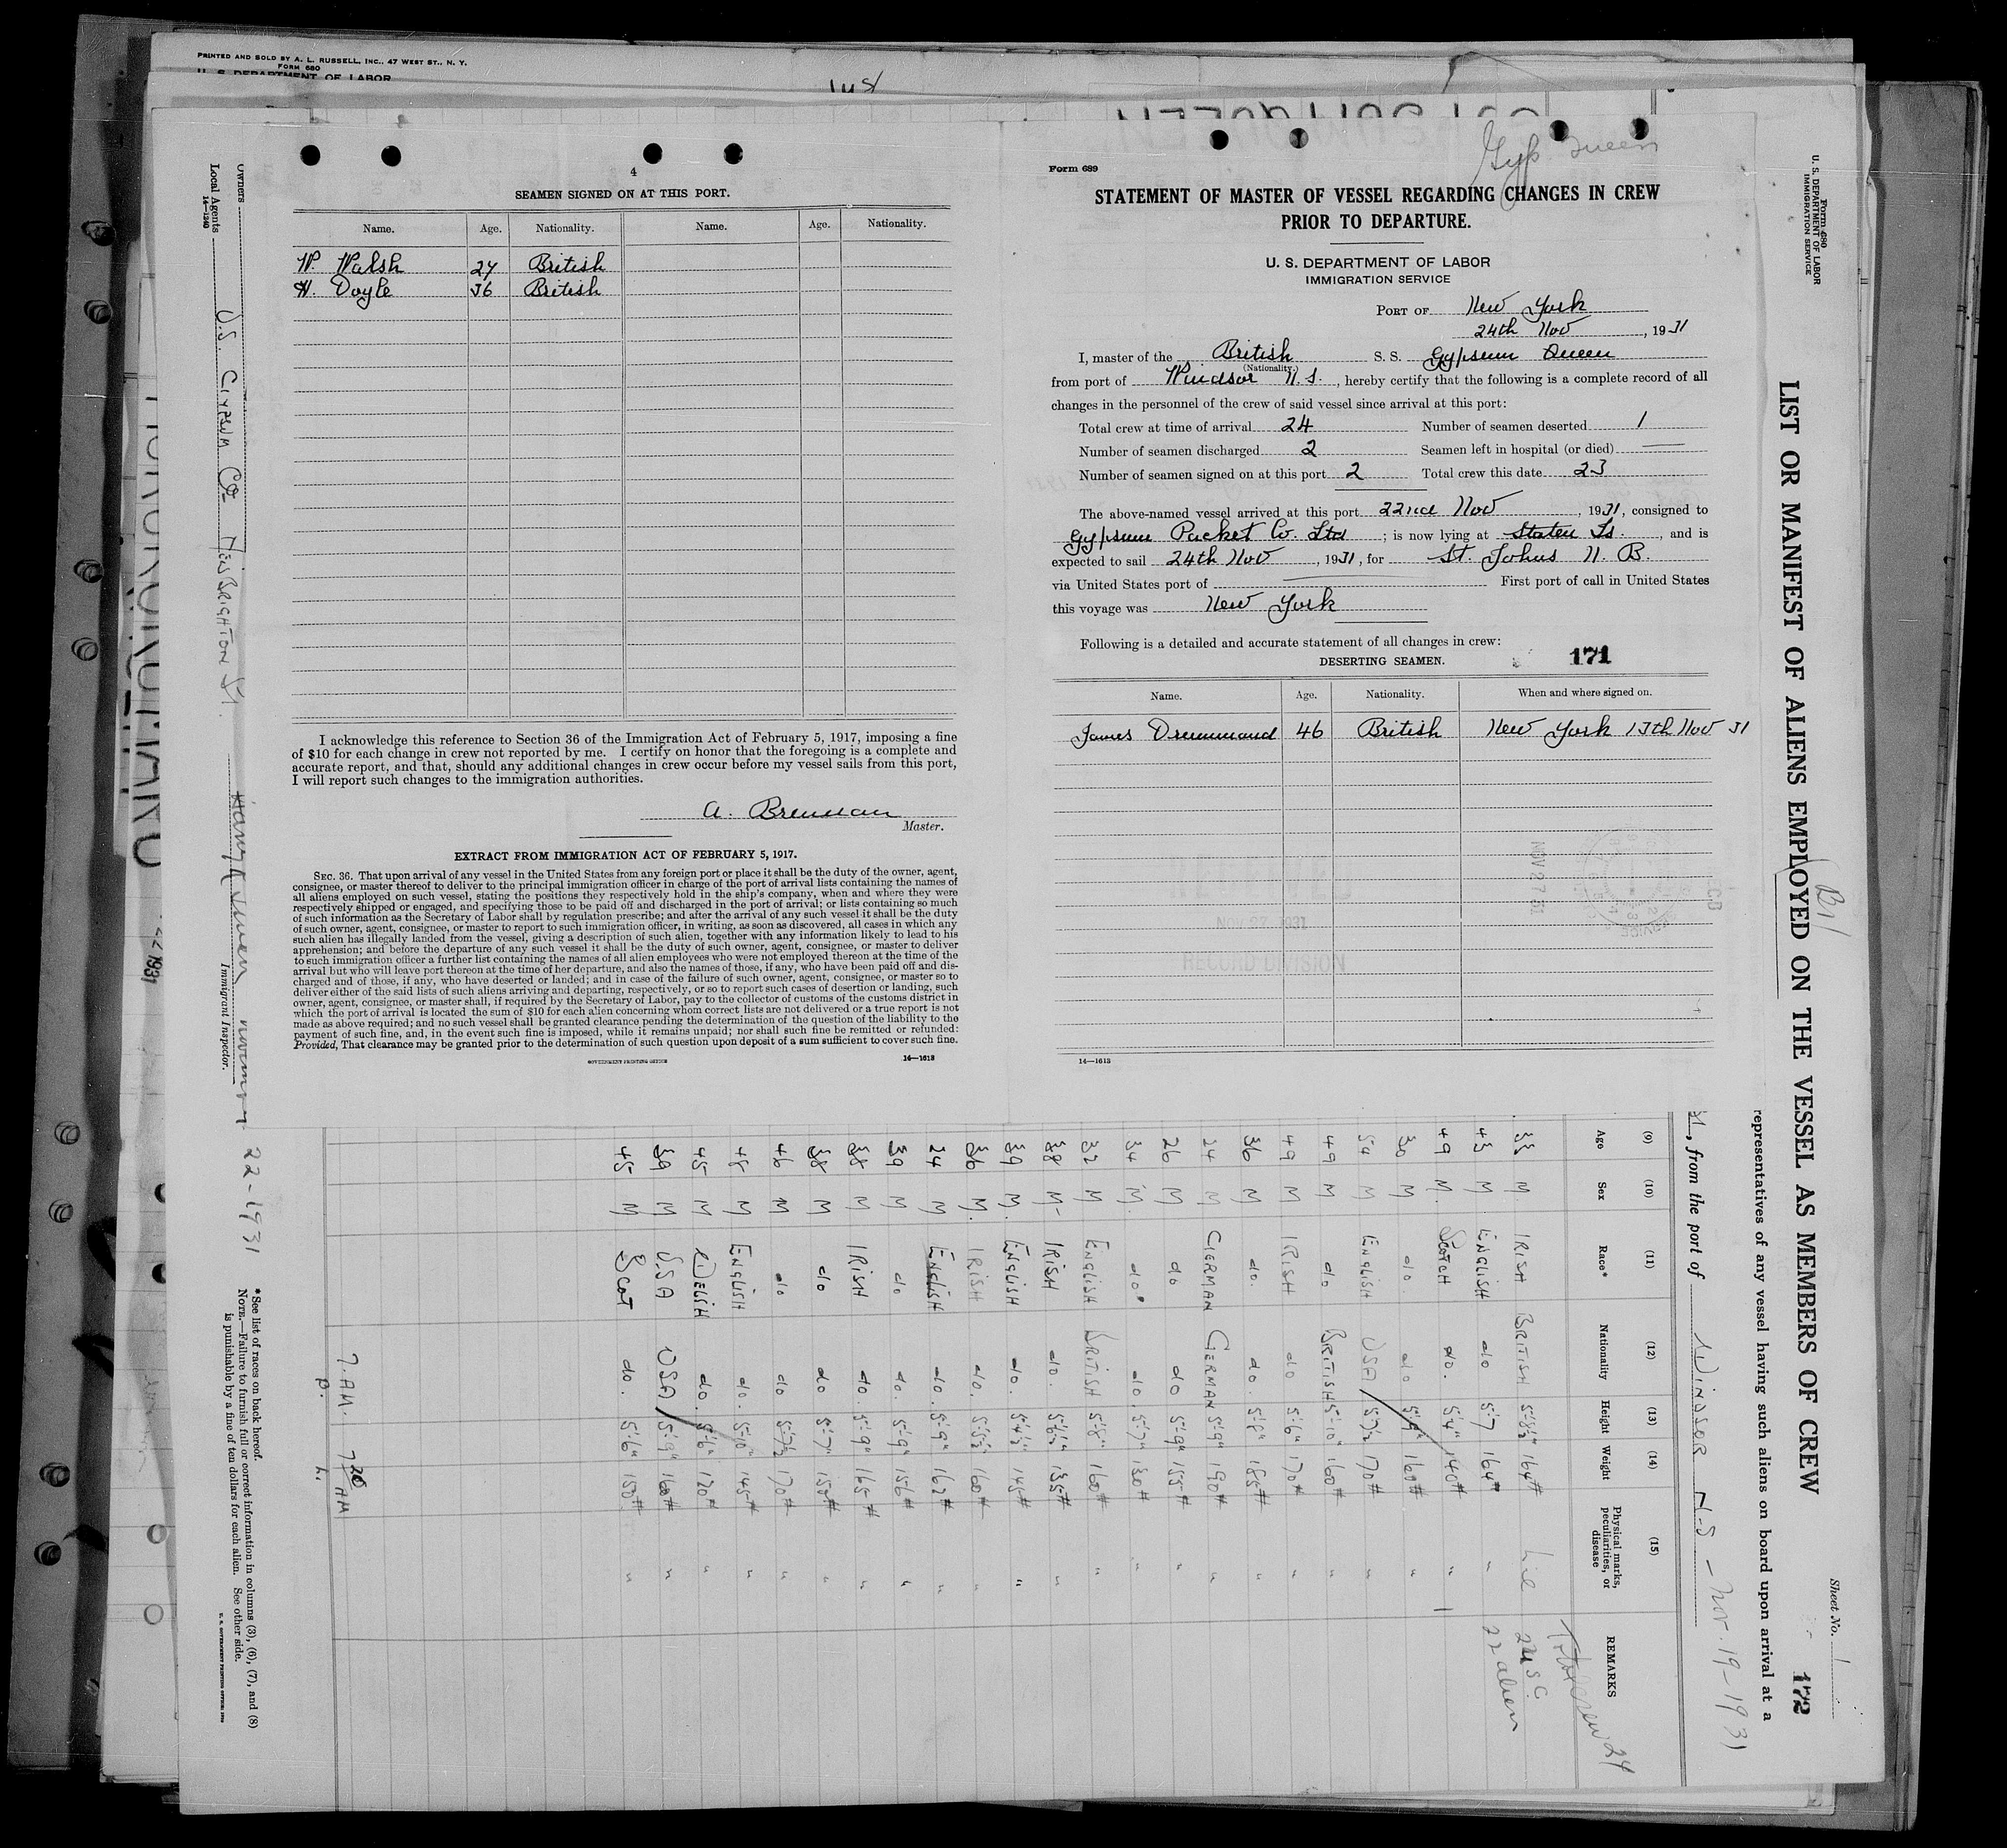 PRINTED AND SOLD BY A. L. RUSSELL, INC., 47 WEST ST., N. Y.
FORM 680
U. S. DEPARTMENT OF LABOR
4
SEAMEN SIGNED ON AT THIS PORT.
Name. Age. Nationality. Name. Age. Nationality.
W. Walsh 27 British
H. Doyle 36 British
I acknowledge this reference to Section 36 of the Immigration Act of February 5, 1917, imposing a fine
of $10 for each change in crew not reported by me. I certify on honor that the foregoing is a complete and
accurate report, and that, should any additional changes in crew occur before my vessel sails from this port,
I will report such changes to the immigration authorities.
A. Brennan
Master.
EXTRACT FROM IMMIGRATION ACT OF FEBRUARY 5, 1917.
SEC. 36. That upon arrival of any vessel in the United States from any foreign port or place it shall be the duty of the owner, agent,
consignee, or master thereof to deliver to the principal immigration officer in charge of the port of arrival lists containing the names of
all aliens employed on such vessel, stating the positions they respectively hold in the ship's company, when and where they were
respectively shipped or engaged, and specifying those to be paid off and discharged in the port of arrival; or lists containing so much
of such information as the Secretary of Labor shall by regulation prescribe; and after the arrival of any such vessel it shall be the duty
of such owner, agent, consignee, or master to report to such immigration officer, in writing, as soon as discovered, all cases in which any
such alien has illegally landed from the vessel, giving a description of such alien, together with any information likely to lead to his
apprehension; and before the departure of any such vessel it shall be the duty of such owner, agent, consignee, or master to deliver
to such immigration officer a further list containing the names of all alien employees who were not employed thereon at the time of the
arrival but who will leave port thereon at the time of her departure, and also the names of those, if any, who have been paid off and dis-
charged and of those, if any, who have deserted or landed; and in case of the failure of such owner, agent, consignee, or master so to
deliver either of the said lists of such aliens arriving and departing, respectively, or so to report such cases of desertion or landing, such
owner, agent, consignee, or master shall, if required by the Secretary of Labor, pay to the collector of customs of the customs district in
which the port of arrival is located the sum of $10 for each alien concerning whom correct lists are not delivered or a true report is not
made as above required; and no such vessel shall be granted clearance pending the determination of the question of the liability to the
payment of such fine, and, in the event such fine is imposed, while it remains unpaid; nor shall such fine be remitted or refunded:
Provided, That clearance may be granted prior to the determination of such question upon deposit of a sum sufficient to cover such fine.
GOVERNMENT PRINTING OFFICE 14—1613
Gyp Queen
Form 689
STATEMENT OF MASTER OF VESSEL REGARDING CHANGES IN CREW
PRIOR TO DEPARTURE.
U. S. DEPARTMENT OF LABOR
IMMIGRATION SERVICE
PORT OF New York
24th Nov, 1931
I, master of the British S. S. Gypsum Queen
(Nationality.)
from port of Windsor N.S., hereby certify that the following is a complete record of all
changes in the personnel of the crew of said vessel since arrival at this port:
Total crew at time of arrival 24 Number of seamen deserted 1
Number of seamen discharged 2 Seamen left in hospital (or died) —
Number of seamen signed on at this port 2 Total crew this date 23
The above-named vessel arrived at this port 22nd Nov, 1931, consigned to
Gypsum Packet Co. Ltd; is now lying at Staten Is., and is
expected to sail 24th Nov, 1931, for St. Johns N. B.
via United States port of — First port of call in United States
this voyage was New York
Following is a detailed and accurate statement of all changes in crew:
DESERTING SEAMEN. 171
Name. Age. Nationality. When and where signed on.
James Drummond 46 British New York 13th Nov 31
NOV 27 31
NOV 27 1931
RECORD DIVISION
14—1613
Form 680
U. S. DEPARTMENT OF LABOR
IMMIGRATION SERVICE
LIST OR MANIFEST OF ALIENS EMPLOYED ON THE VESSEL AS MEMBERS OF CREW
B1
Sheet No. 1
172
representatives of any vessel having such aliens on board upon arrival at a
, from the port of Windsor N-S - Nov. 19-1931
(9) (10) (11) (12) (13) (14) (15)
Age Sex Race* Nationality Height Weight Physical marks, peculiarities, or disease REMARKS
Total crew 24
33 M IRISH BRITISH 5'8½" 164# 2 USC
43 M ENGLISH do 5'-7 164# " 22 alien
49 M. SCOTCH do. 5'4" 140# "
30 M do. do 5'9" 160# "
54 M ENGLISH USA 5'7½ 170# "
49 M do BRITISH 5'-10" 160# "
49 M IRISH do 5'6" 170# "
36 M do. do. 5'8" 185# "
24 M GERMAN GERMAN 5'9" 190# "
26 M do do 5'-9" 155# "
34 M. do. do. 5'-7" 130# "
32 M ENGLISH BRITISH 5'-8" 160# "
38 M- IRISH do. 5'6½" 135# "
39 M. ENGLISH do. 5'4½" 145# "
36 M. IRISH do. 5'5½" 160# "
24 M ENGLISH do. 5'-9" 162# "
39 M do do. 5'-9" 156# "
38 M IRISH do. 5'-9" 165# "
38 M do do 5'-7" 158# "
46 M do do 5'-7½ 170# "
48 M ENGLISH do. 5'-10" 145# "
45 M do. 5'6" 120# "
39 M U.S.A USA 5'9" 160# "
45 M Scot do. 5'6" 150# "
7. AM. 7 20 AM
Owners
Local Agents U.S. GYPSUM Co NEW BRIGHTON S.I.
14—1240
Immigrant Inspector.
22-1931
*See list of races on back hereof.
NOTE.—Failure to furnish full or correct information in columns (3), (6), (7), and (8)
is punishable by a fine of ten dollars for each alien. See other side.